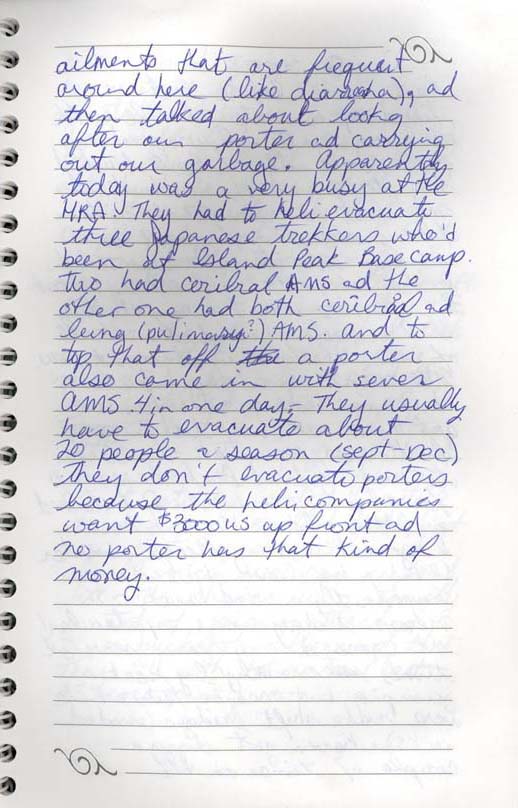 ailments that are frequent
around here (like diarreaha), ad
then talked about lookg
after our porter ad carrying
out our garbage. Apparently
today was a very busy at the
HRA. They had to heli evacuate
three Japanese trekkers who'd
been at Island Peak Basecamp.
two had ceribral AMS ad the
other one had both ceribral ad
leung (pulimary?) AMS. and to
top that off the a porter
also came in with sever
AMS. 4 in one day. They usually
have to evacuate about
20 people a season (sept-Dec)
they don't evacuate porters
because the heli companies
want $3000 US up front ad
no porter has that kind of
money.